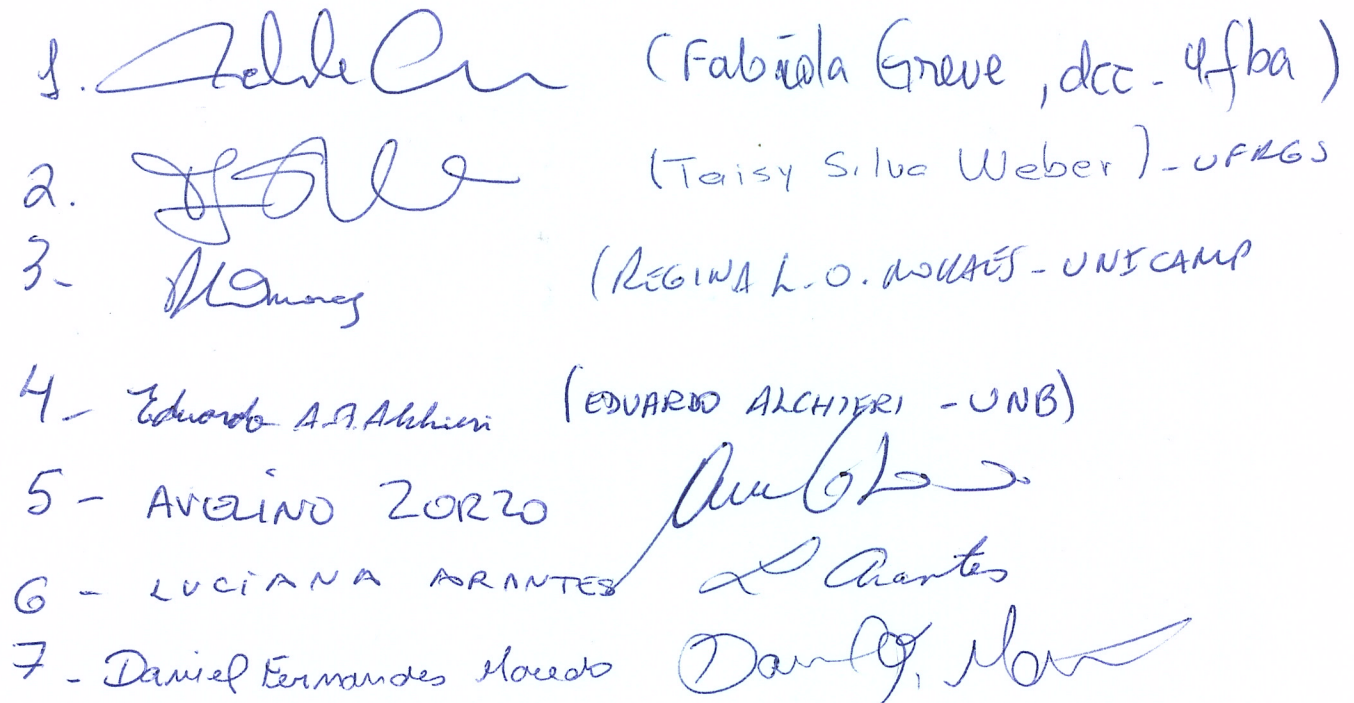 1. (Fabíola Greve, dcc - Ufba)
2. (Taisy Silva Weber) - UFRGS
3- (REGINA L. O. MORAES - UNICAMP
4- Eduardo A. P. Alchieri (EDUARDO ALCHIERI - UNB)
5- AVELINO ZORZO
6- LUCIANA ARANTES L Arantes
7- Daniel Fernandes Macedo